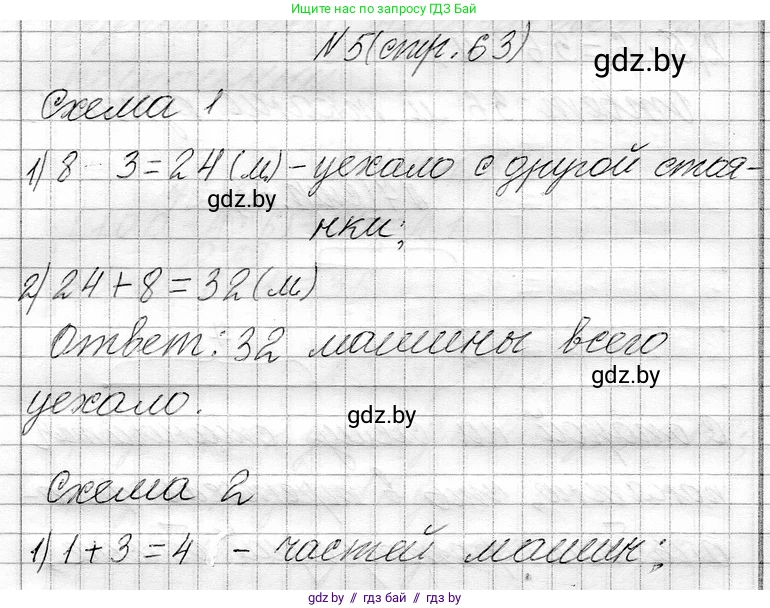 Ищите нас по запросу ГДЗ Бай
№5(стр. 63)
gdz.by
Схема 1
1) 8 · 3 = 24 (м) - уехало с другой стоя-
gdz.by
нки;
2) 24 + 8 = 32 (м)
Ответ: 32 машины всего
gdz.by
уехало.
gdz.by
Схема 2
1) 1 + 3 = 4 - частей машин;
gdz.by // гдз бай // gdz.by